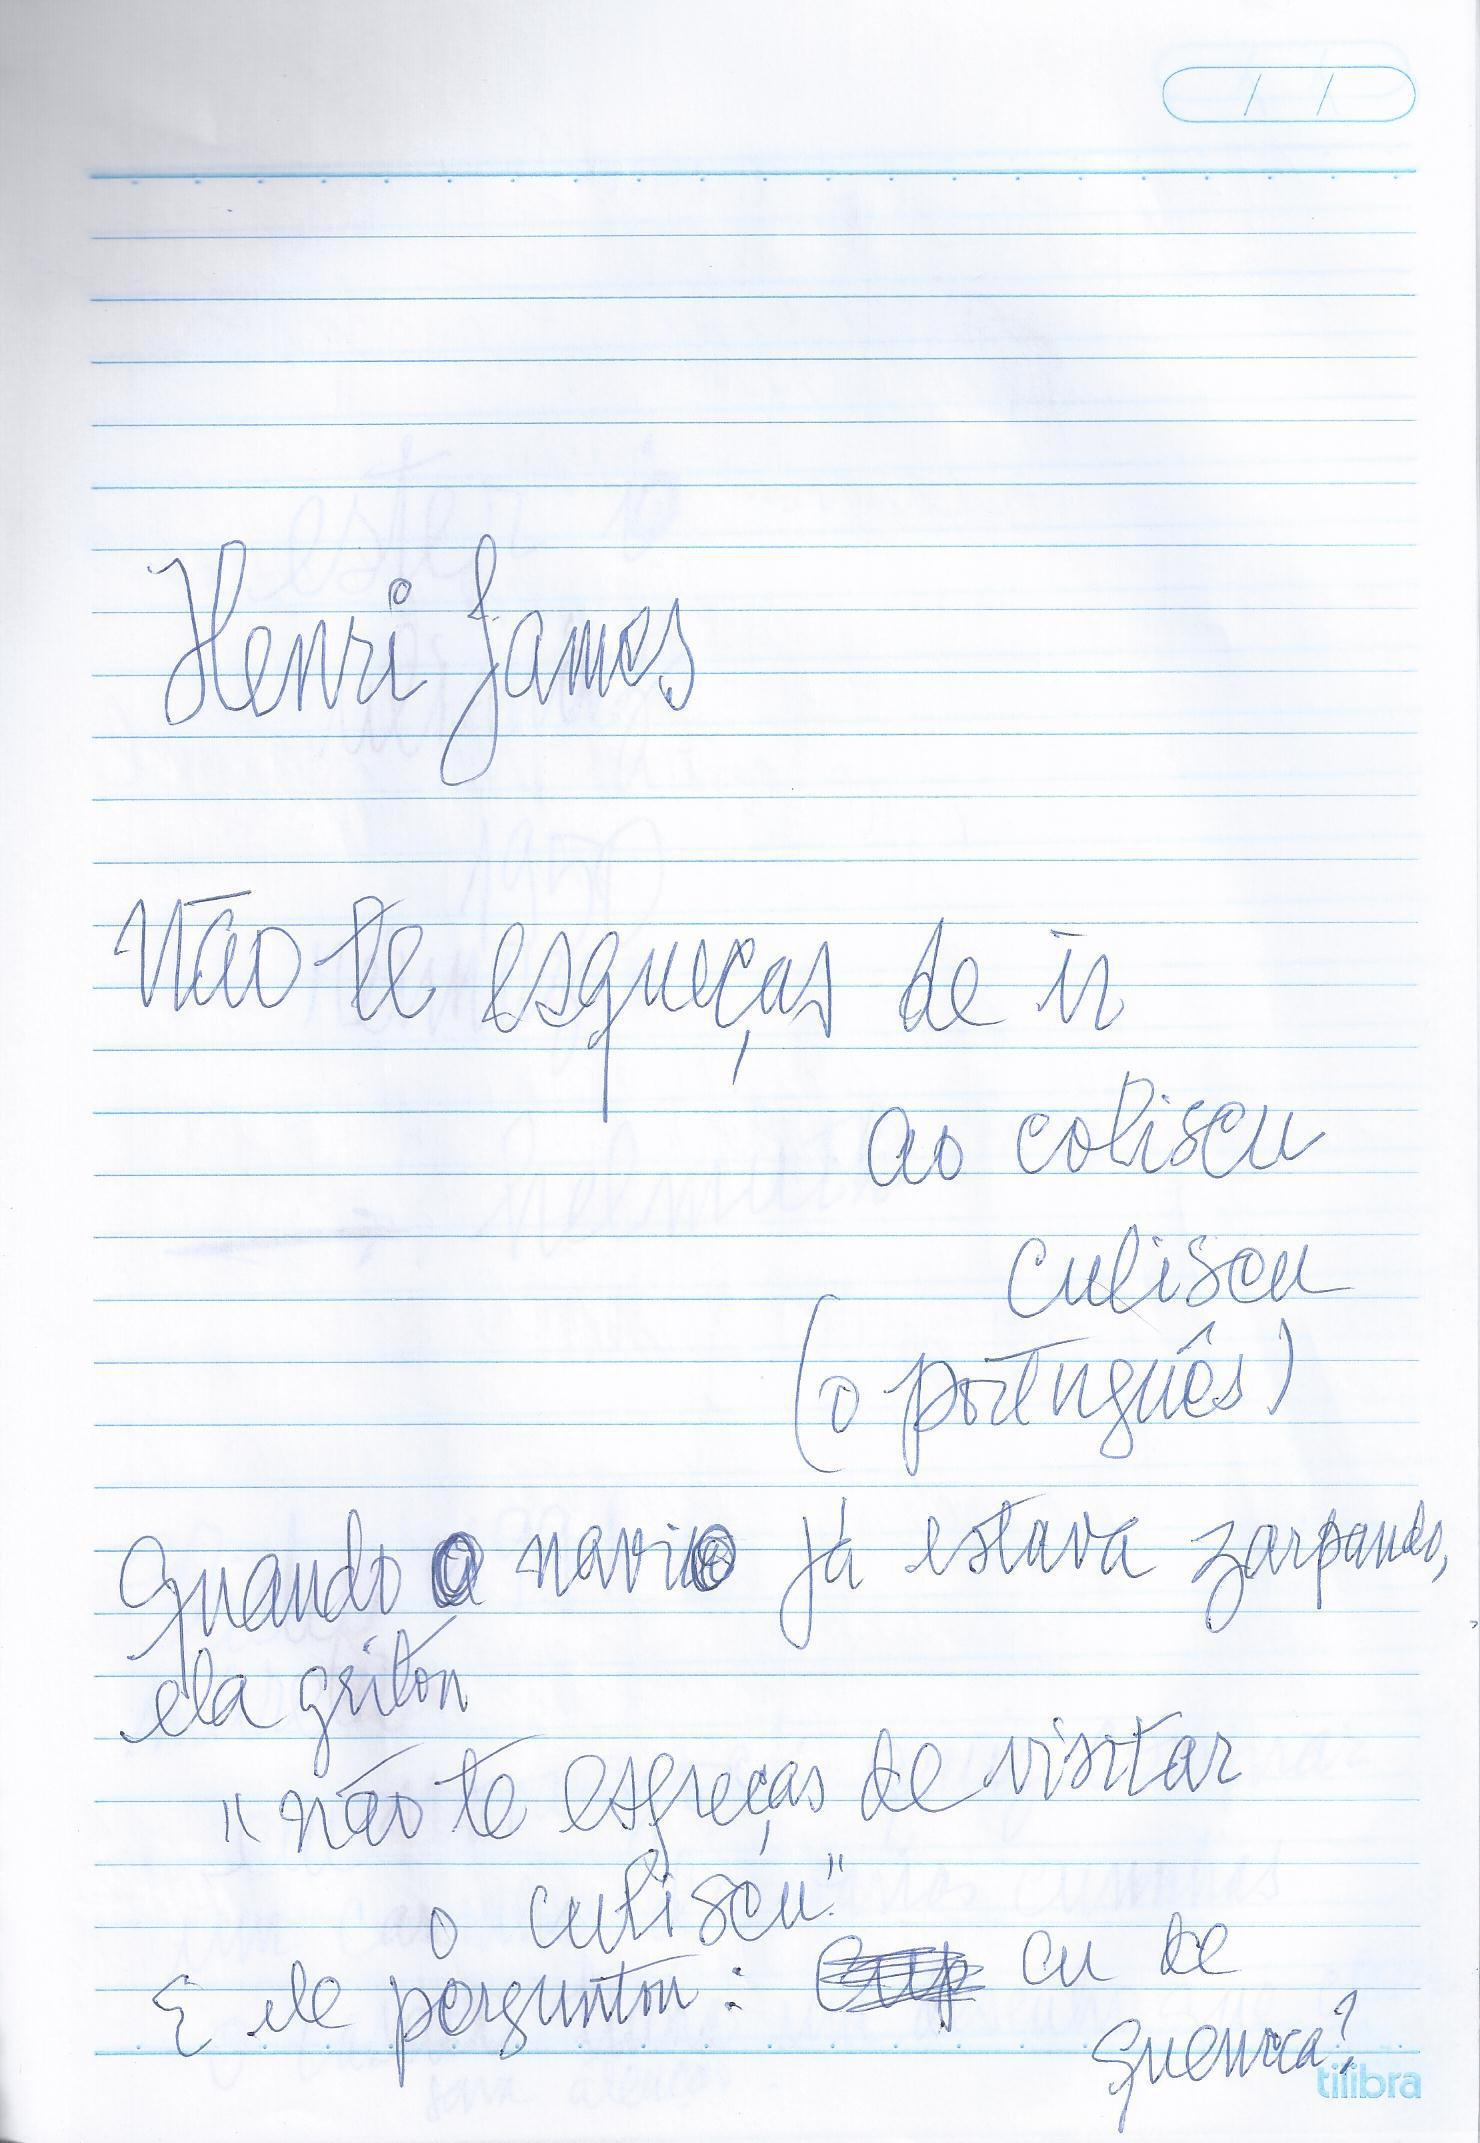 Henri James
Não te esqueças de ir
ao coliseu
culiseu
(o português)
Quando o navio já estava zarpando,
ela gritou
"não te esqueças de visitar
o culiseu"
E ele perguntou: cu de
quem
tilibra